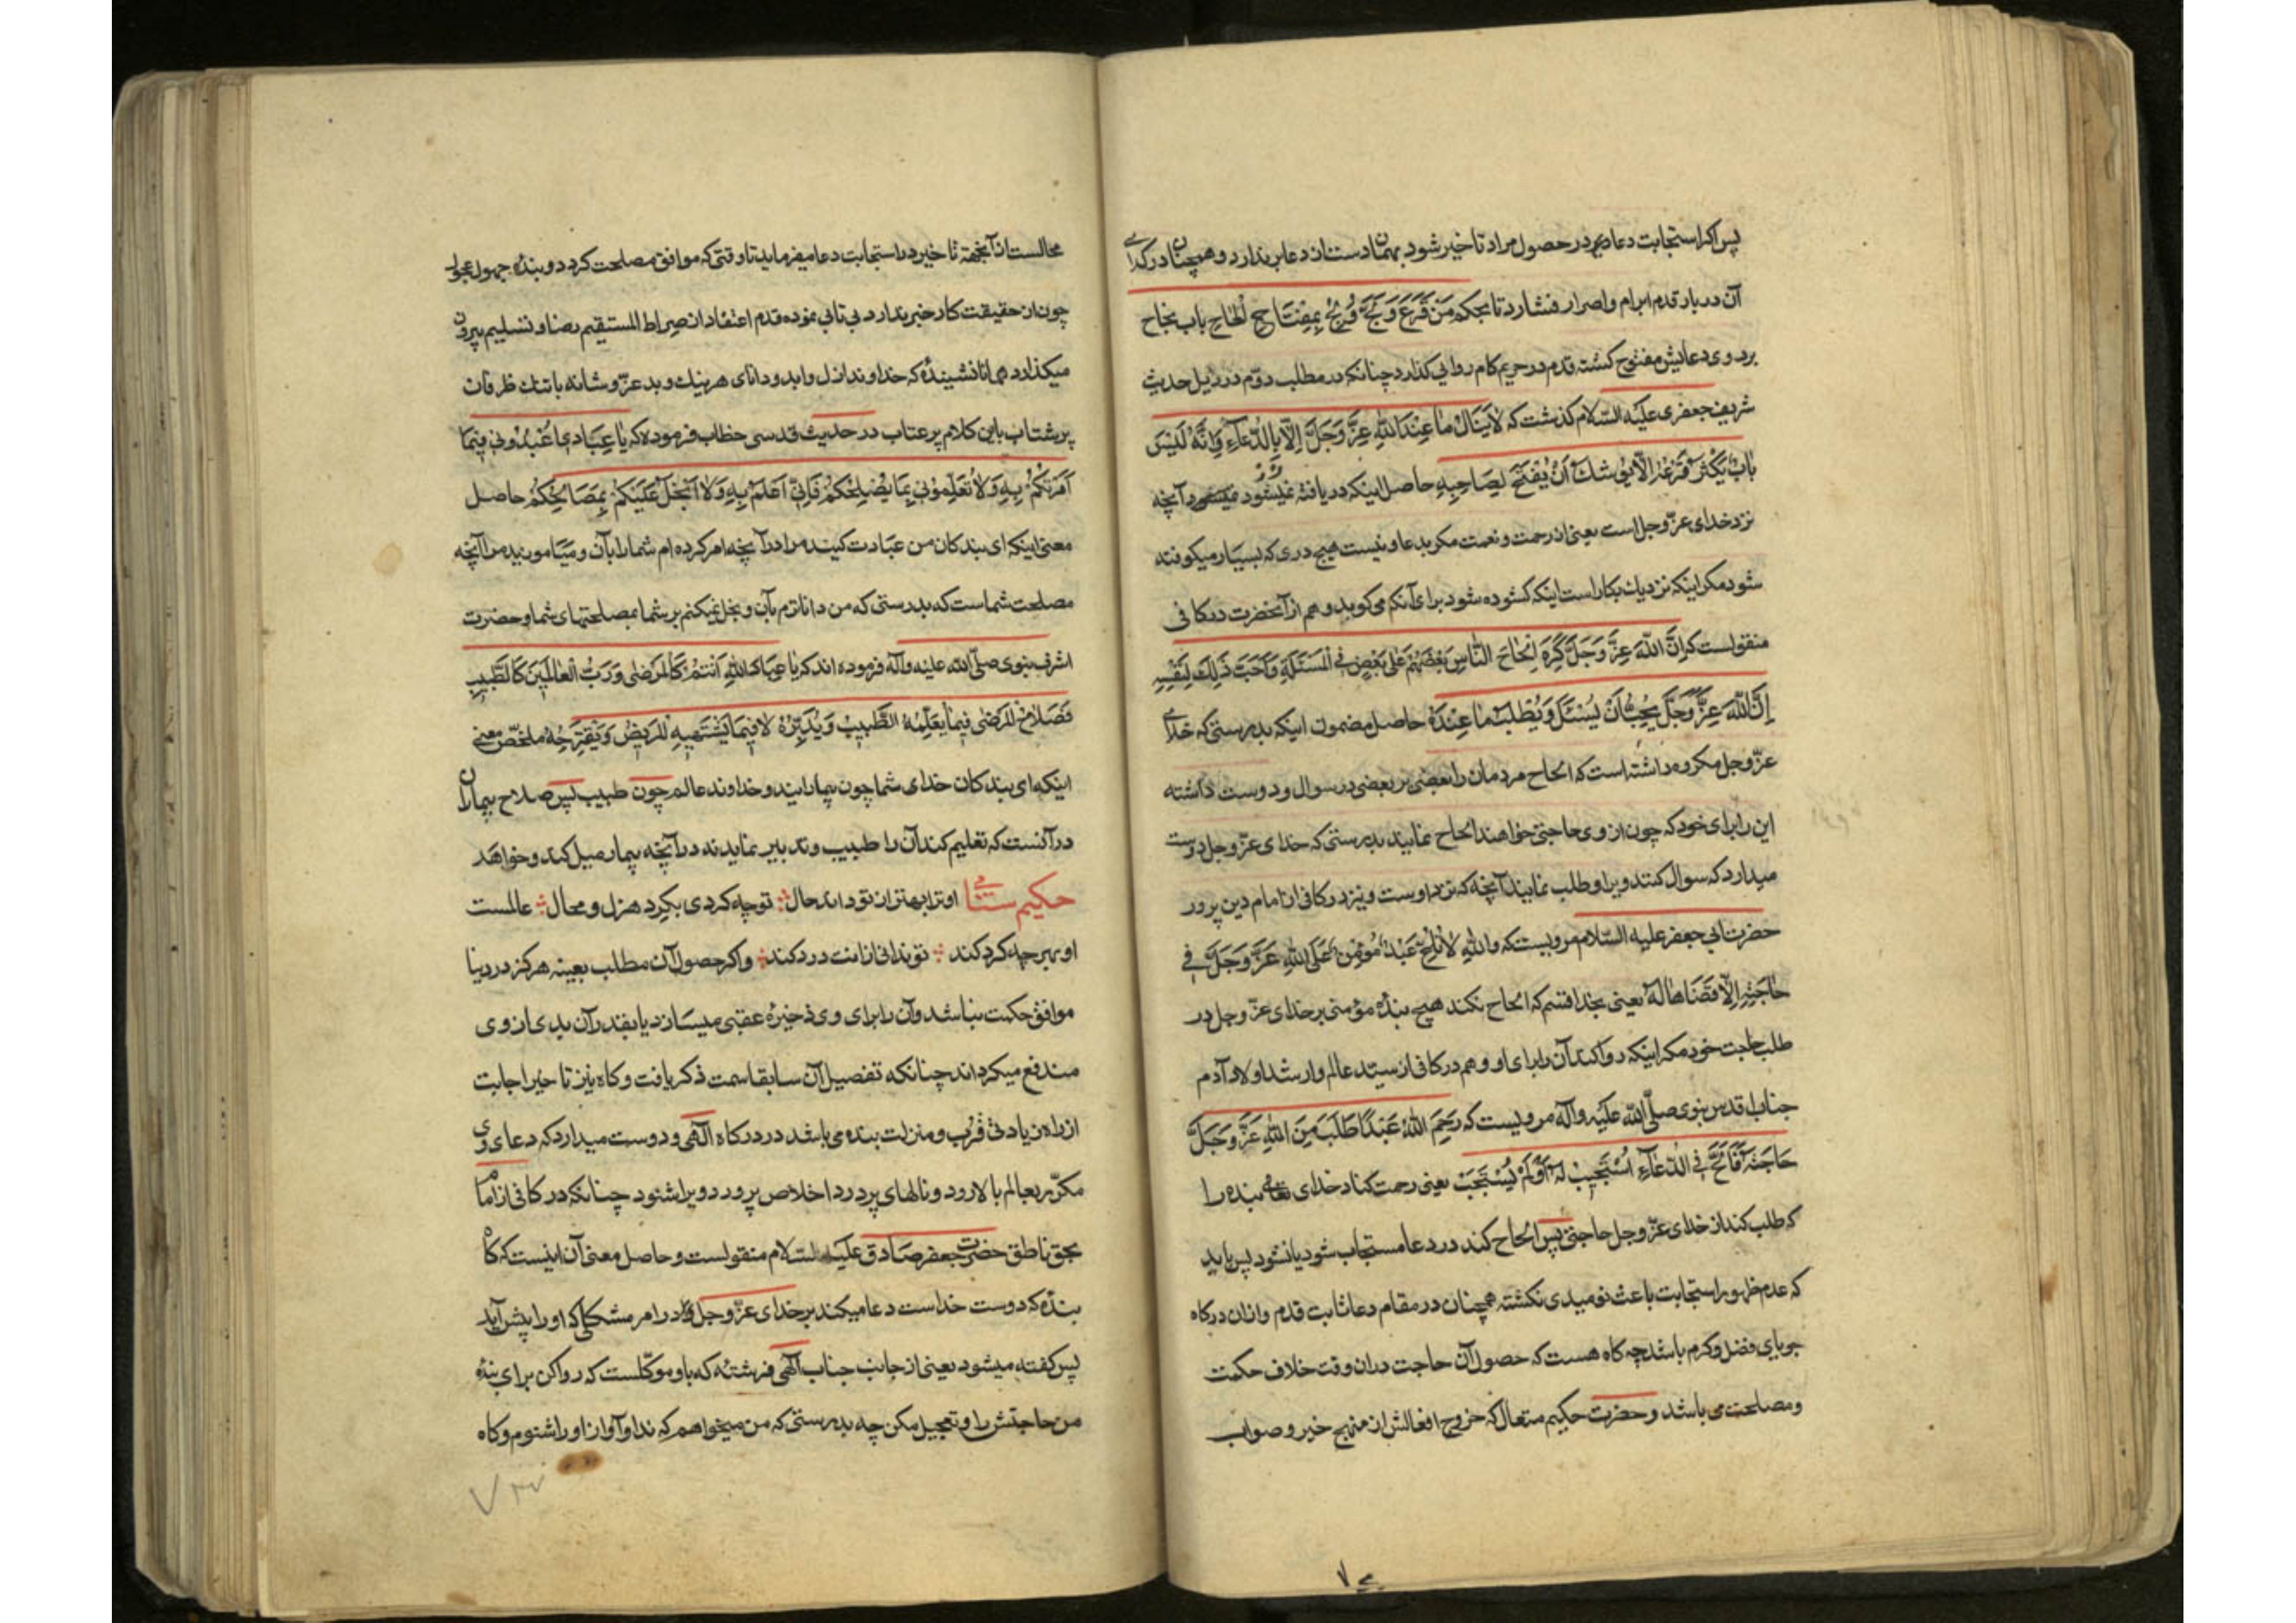 پس اگر استجابت دعا دیر در حصول مراد تاخیر شود بهمان دست از دعا برندارد و همچنان در گدایی
آن دربار قدم ابرام و اصرار فشارد تا بحکم مَنْ قَرَعَ بِمِفْتَاحِ الْحَاحِ باب نجاح
بر روی دعایش مفتوح کشته قدم در حریم کام روایی کذارد چنانکه در مطلب دوّم در ذیل حدیث
شریف جعفری علیه السّلام کذشت که لَا يَنَالُ مَا عِنْدَ اللهِ عَزَّ وَجَلَّ إِلَّا بِالدُّعَاءِ وَإِنَّهُ لَيْسَ
بَابٌ يَكْثُرُ قَرْعُهُ إِلَّا يُوشَكُ أَنْ يُفْتَحَ لِصَاحِبِهِ حاصل اینکه دریافته نمیشود آنچه
نزد خدای عزّ وجل است یعنی از رحمت و نعمت مکر بدعا و نیست هیچ دری که بسیار میکوفته
شود مکر اینکه نزدیک بکار است اینکه کشوده شود برای آنکه می کوبد و هم از آنحضرت در کافی
منقولست که إِنَّ اللهَ عَزَّ وَجَلَّ كَرِهَ إِلْحَاحَ النَّاسِ بَعْضِهِمْ عَلَى بَعْضٍ فِي الْمَسْئَلَةِ وَأَحَبَّ ذَلِكَ لِنَفْسِهِ
إِنَّ اللهَ عَزَّ وَجَلَّ يُحِبُّ أَنْ يُسْئَلَ وَيُطْلَبَ مَا عِنْدَهُ حاصل مضمون اینکه بدرستی که خدای
عزّ وجل مکروه داشته است که الحاح مردمان را بعضی بر بعضی در سوال و دوست داشته
این را برای خود که چون از وی حاجتی خواهند الحاح نمایند بدرستی که خدای عزّ وجل دوست
میدارد که سوال کنند ویرا و طلب نمایند آنچه که نزد اوست و نیز در کافی از امام دین پرور
حضرت ابی جعفر علیه السّلام مرویست که وَاللهِ لَا يُلِحُّ عَبْدٌ مُؤْمِنٌ عَلَى اللهِ عَزَّ وَجَلَّ فِي
حَاجَتِهِ إِلَّا قَضَاهَا لَهُ یعنی بخدا قسم که الحاح نکند هیچ بندهٔ مؤمنی بر خدای عزّ وجل در
طلب حاجت خود مکر اینکه روا کند آن را برای او و هم در کافی از سیّد عالم وارشد اولاد آدم
جناب اقدس نبوی صلّی الله علیه وآله مرویست که رَحِمَ اللهُ عَبْدًا طَلَبَ مِنَ اللهِ عَزَّ وَجَلَّ
حَاجَتَهُ فَأَلَحَّ فِي الدُّعَاءِ اسْتُجِيبَ لَهُ أَوْ لَمْ يُسْتَجَبْ یعنی رحمت کناد خدای تعالی بنده را
که طلب کند از خدای عزّ وجل حاجتی پس الحاح کند در دعا مستجاب شود یا نشود پس باید
که عدم ظهور استجابت باعث نومیدی نکشته همچنان در مقام دعا ثابت قدم و از ان درکاه
جویای فضل و کرم باشد چه کاه هست که حصول آن حاجت در ان وقت خلاف حکمت
و مصلحت می باشد و حضرت حکیم متعال که خروج افعالش از منهج خیر و صواب
محالست از آنجهة تاخیر در استجابت دعا میفرماید تا وقتی که موافق مصلحت کردد و بنده جهول عجول
چون از حقیقت کار خبر ندارد بی تابی نموده قدم اعتقاد از صراط المستقیم رضا و تسلیم بیرون
میکذارد همانا نشینیدهٔ که خداوند ازل و ابد و دانای هر نیک و بد عزّ وشانه با تنک ظرفان
پرشتاب باین کلام پرعتاب در حدیث قدسی خطاب فرموده که يَا عِبَادِي اعْبُدُونِي فِيمَا
أَمَرْتُكُمْ بِهِ وَلَا تُعَلِّمُونِي بِمَا يُصْلِحُكُمْ فَإِنِّي أَعْلَمُ بِهِ وَلَا أَبْخَلُ عَلَيْكُمْ بِمَصَالِحِكُمْ حاصل
معنی اینکه ای بندکان من عبادت کنید مرا در آنچه امر کرده ام شما را بآن و میاموزید مرا آنچه
مصلحت شماست که بدرستی که من داناترم بآن و بخل نمیکنم بر شما بمصلحتهای شما و حضرت
اشرف نبوی صلّی الله علیه وآله فرموده اند که يَا عِبَادَ اللهِ أَنْتُمْ كَالْمَرْضَى وَرَبُّ الْعَالَمِينَ كَالطَّبِيبِ
فَصَلَاحُ الْمَرْضَى فِيمَا يَعْلَمُهُ الطَّبِيبُ وَيُدَبِّرُهُ لَا فِيمَا يَشْتَهِيهِ الْمَرِيضُ وَيَقْتَرِحُهُ ملخّص معنی
اینکه ای بندکان خدای شما چون بیمارانید و خداوند عالم چون طبیب پس صلاح بیماران
در آنست که تعلیم کند آن را طبیب و تدبیر نماید نه در آنچه بیمار میل کند و خواهد
حکیم سنائی او ترا بهتر از تو داند حال توچه کردی بکرد هزل و محال عالمست
او بهرچه کرد کند تو ندانی ازانت درد کند و اکر حصول آن مطلب بعینه هرکز در دنیا
موافق حکمت نباشد و آن را برای وی ذخیرهٔ عقبی میسازد یا بقدر آن بدی از وی
مندفع میکرداند چنانکه تفصیل آن سابقا سمت ذکر یافت و کاه نیز تاخیر اجابت
از راه زیادتی قرب و منزلت بنده می باشد در درکاه الهی و دوست میدارد که دعای وی
مکرّر بعالم بالا رود و نالهای پردرد اخلاص پرورد ویرا شنود چنانکه در کافی از امام
بحق ناطق حضرت جعفر صادق علیه السّلام منقولست و حاصل معنی آن اینست که کاه
بندهٔ که دوست خداست دعا میکند بر خدای عزّ وجل در امر مشکلی که او را پیش آید
پس کفته میشود یعنی از جانب جناب الهی فرشتهٔ که باو موکّلست که روا کن برای بندهٔ
من حاجتش را و تعجیل مکن چه بدرستی که من میخواهم که ندا و آواز او را شنوم و کاه